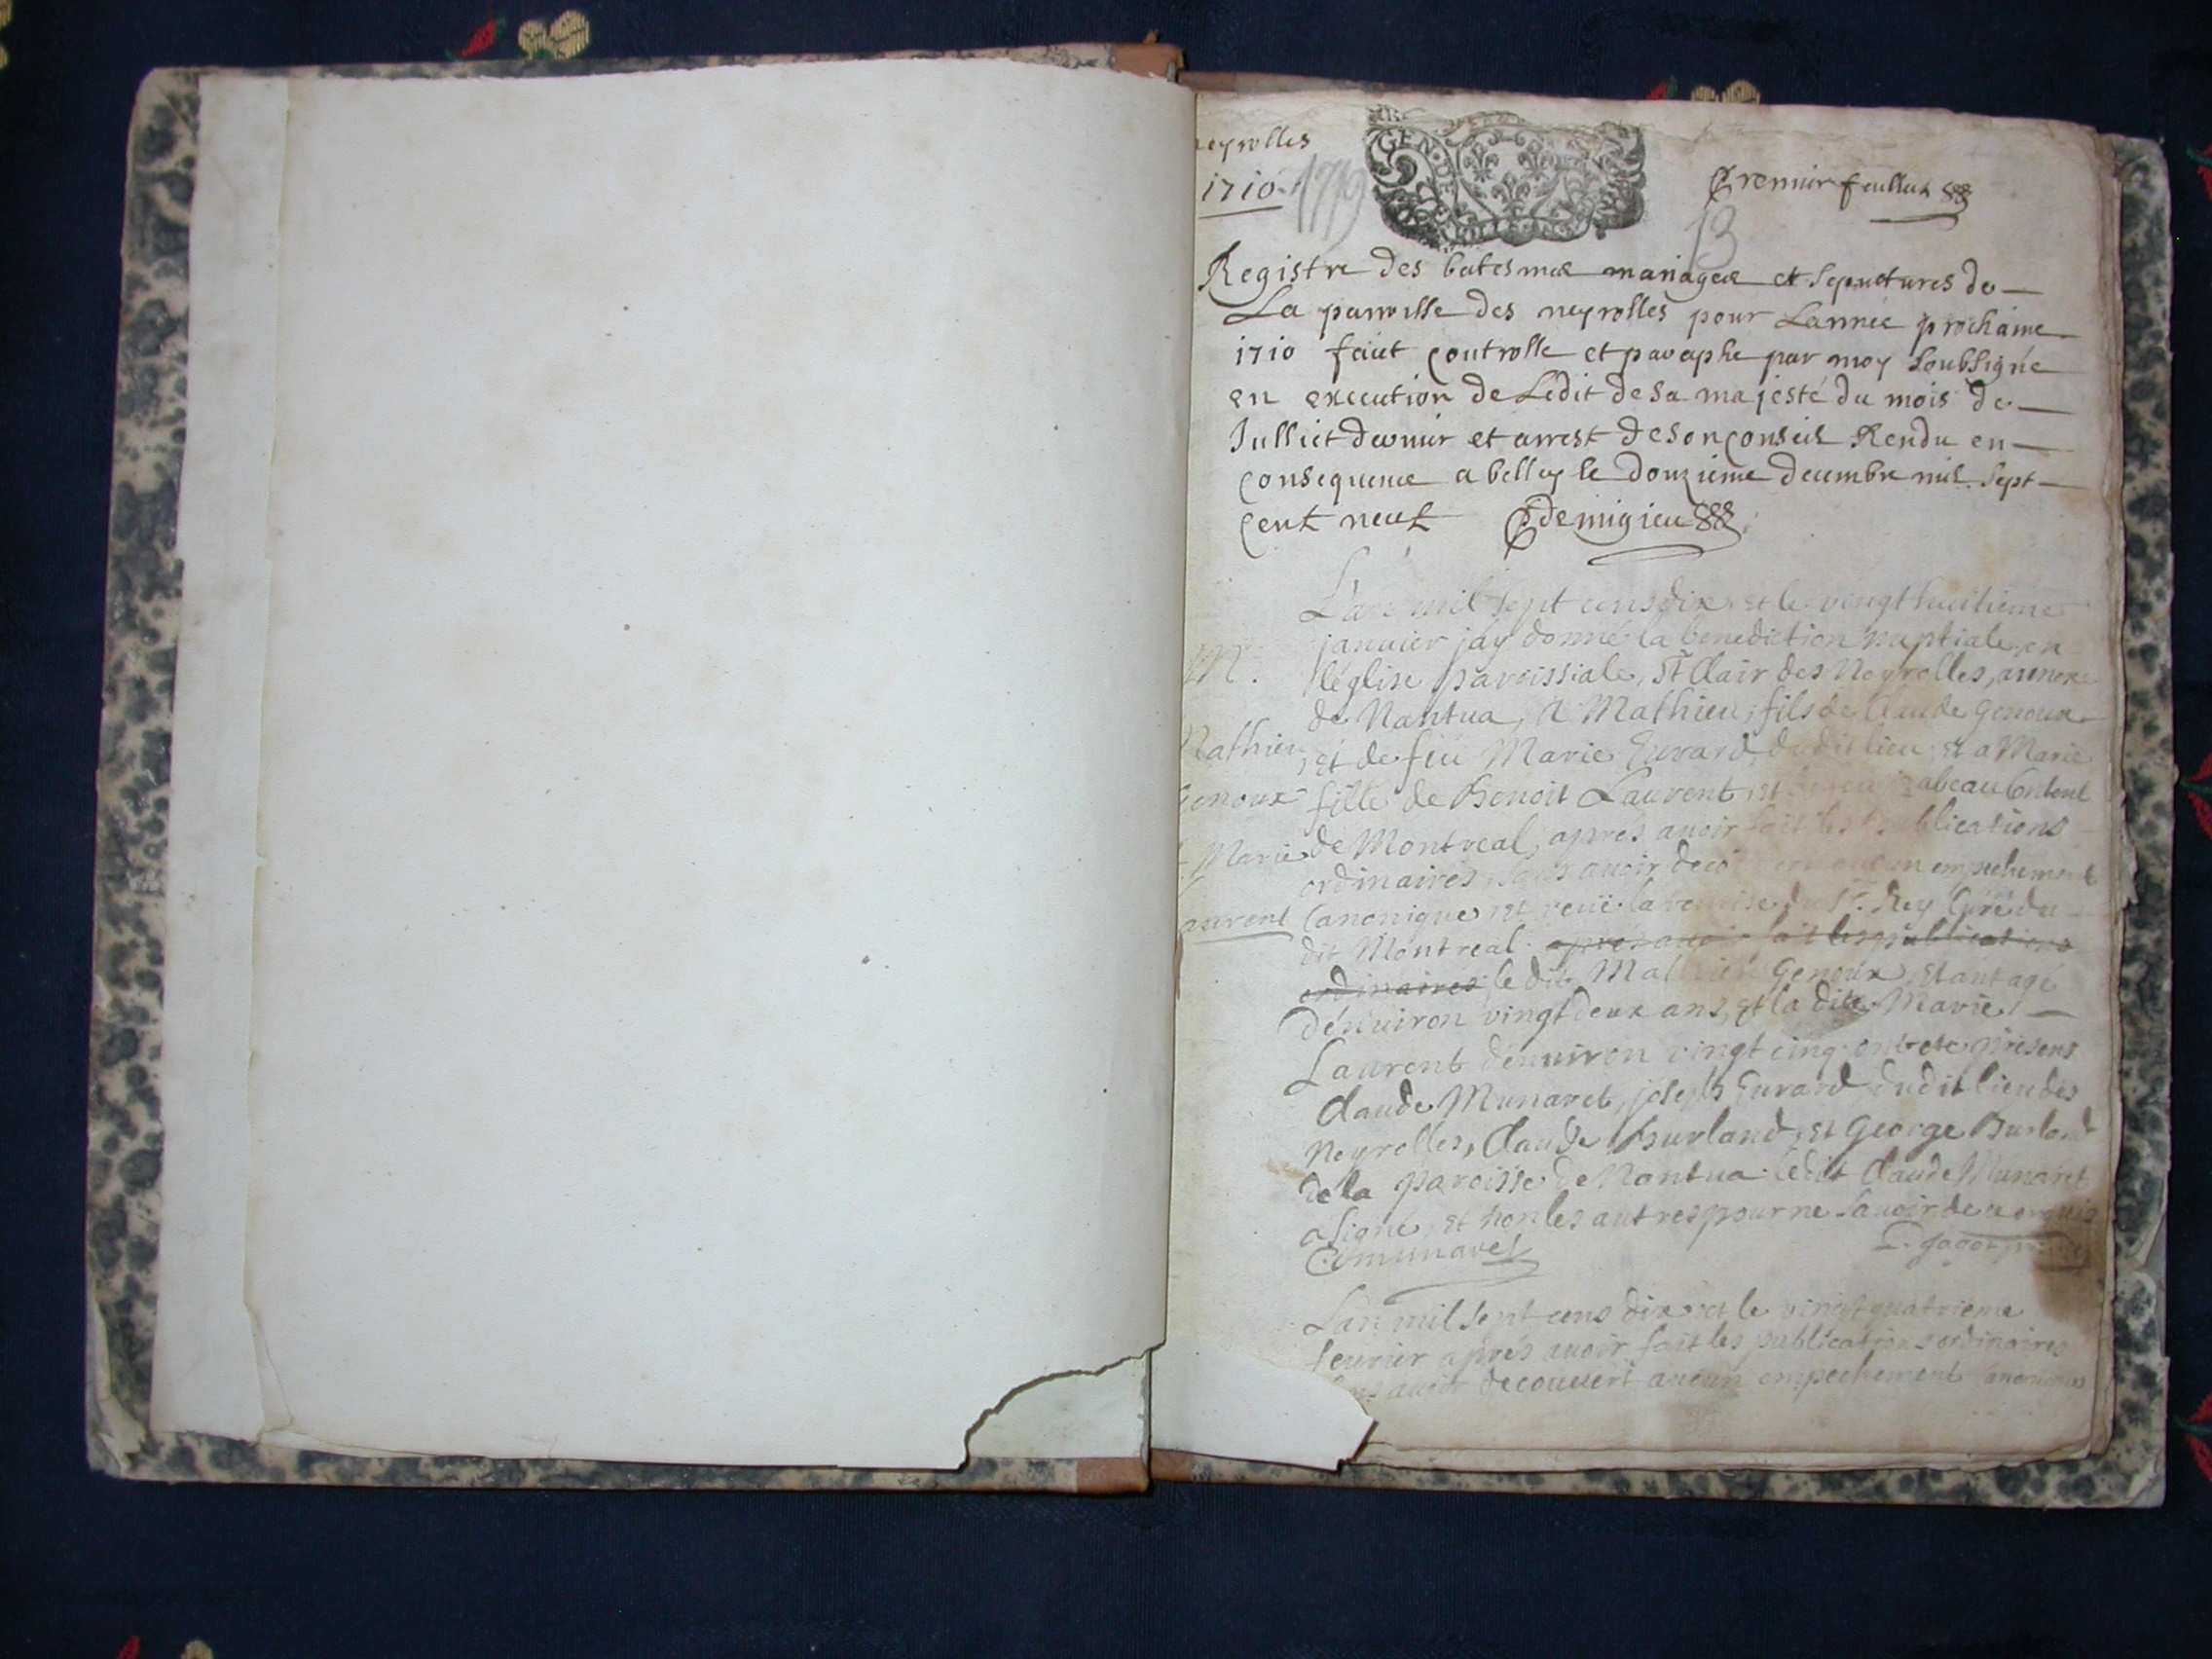 neyrolles
1710
1779
GEN. DE
Premier feullet
13
Registre des batesmes mariages et sepultures de
La parroisse des neyrolles pour Lannée prochaine
1710 faict controlle et paraphe par moy soubsigné
en execution de Ledit de sa majesté du mois de
Julliet dernier et arrest de son conseil Rendu en
consequence a belley le douzieme decembre mil sept
cent neuf Demigieu
L'an mil sept cens dix et le vingt huitieme
janvier jay donné la benediction nuptiale, en
M.
l'église paroissiale, St Clair des Neyrolles, annexe
de Nantua, a Mathieu, fils de Claude Genoux
Mathieu
et de feu Marie Evrard dudit lieu et a Marie
Genoux
fille de Benoit Laurent et
et Marie
de Montreal, apres avoir fait les publications
ordinaires, sans avoir decouvert aucun empechement
Laurent
Canonique et veüe la remise du Sr. Rey Curé du
dit Montreal. apres avoir fait les publications
ordinaires, le dit Mathieu Genoux, etant agé
d'énuiron vingt deux ans, et la dite Marie
Laurent d'énuiron vingt cinq, ont eté présens
Claude Munaret, joseph Evrard dudit lieu des
Neyrolles, Claude Burland, et George Burland
de la paroisse de Nantua. ledit Claude Munaret
a signé, et non les autres pour ne savoir de ce enquis
C. munaret
Lan mil sept cens dix et le vingt quatrieme
feurier apres auoir fait les publications ordinaires
sans auoir decouuert aucun empechement canonique